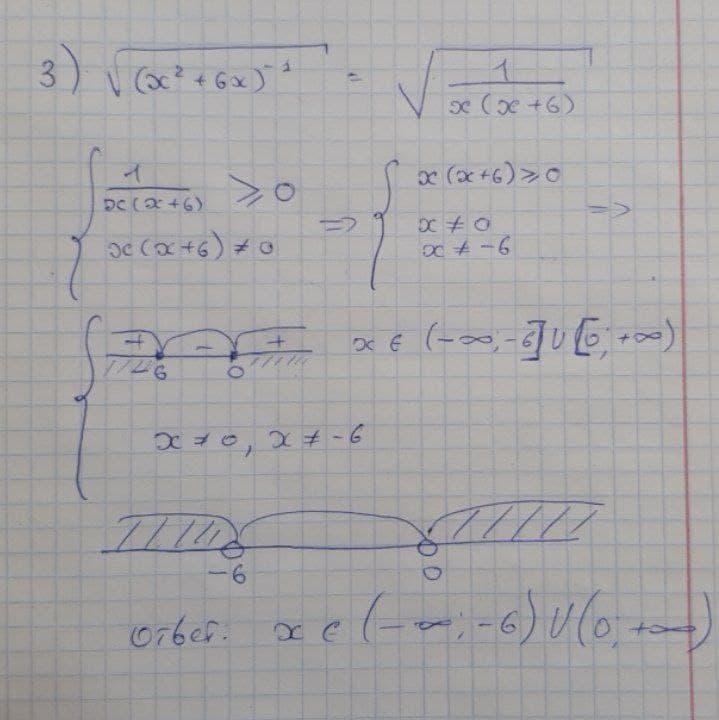 3) √(x² + 6x)⁻¹ = √1/x(x+6)
{ 1/x(x+6) ⩾ 0 => { x(x+6) ⩾ 0 =>
x(x+6) ≠ 0 x ≠ 0
x ≠ -6
{ + - + x ∈ (-∞; -6] ∪ [0; +∞)
-6 0
x ≠ 0, x ≠ -6
-6 0
ответ: x ∈ (-∞; -6) ∪ (0; +∞)